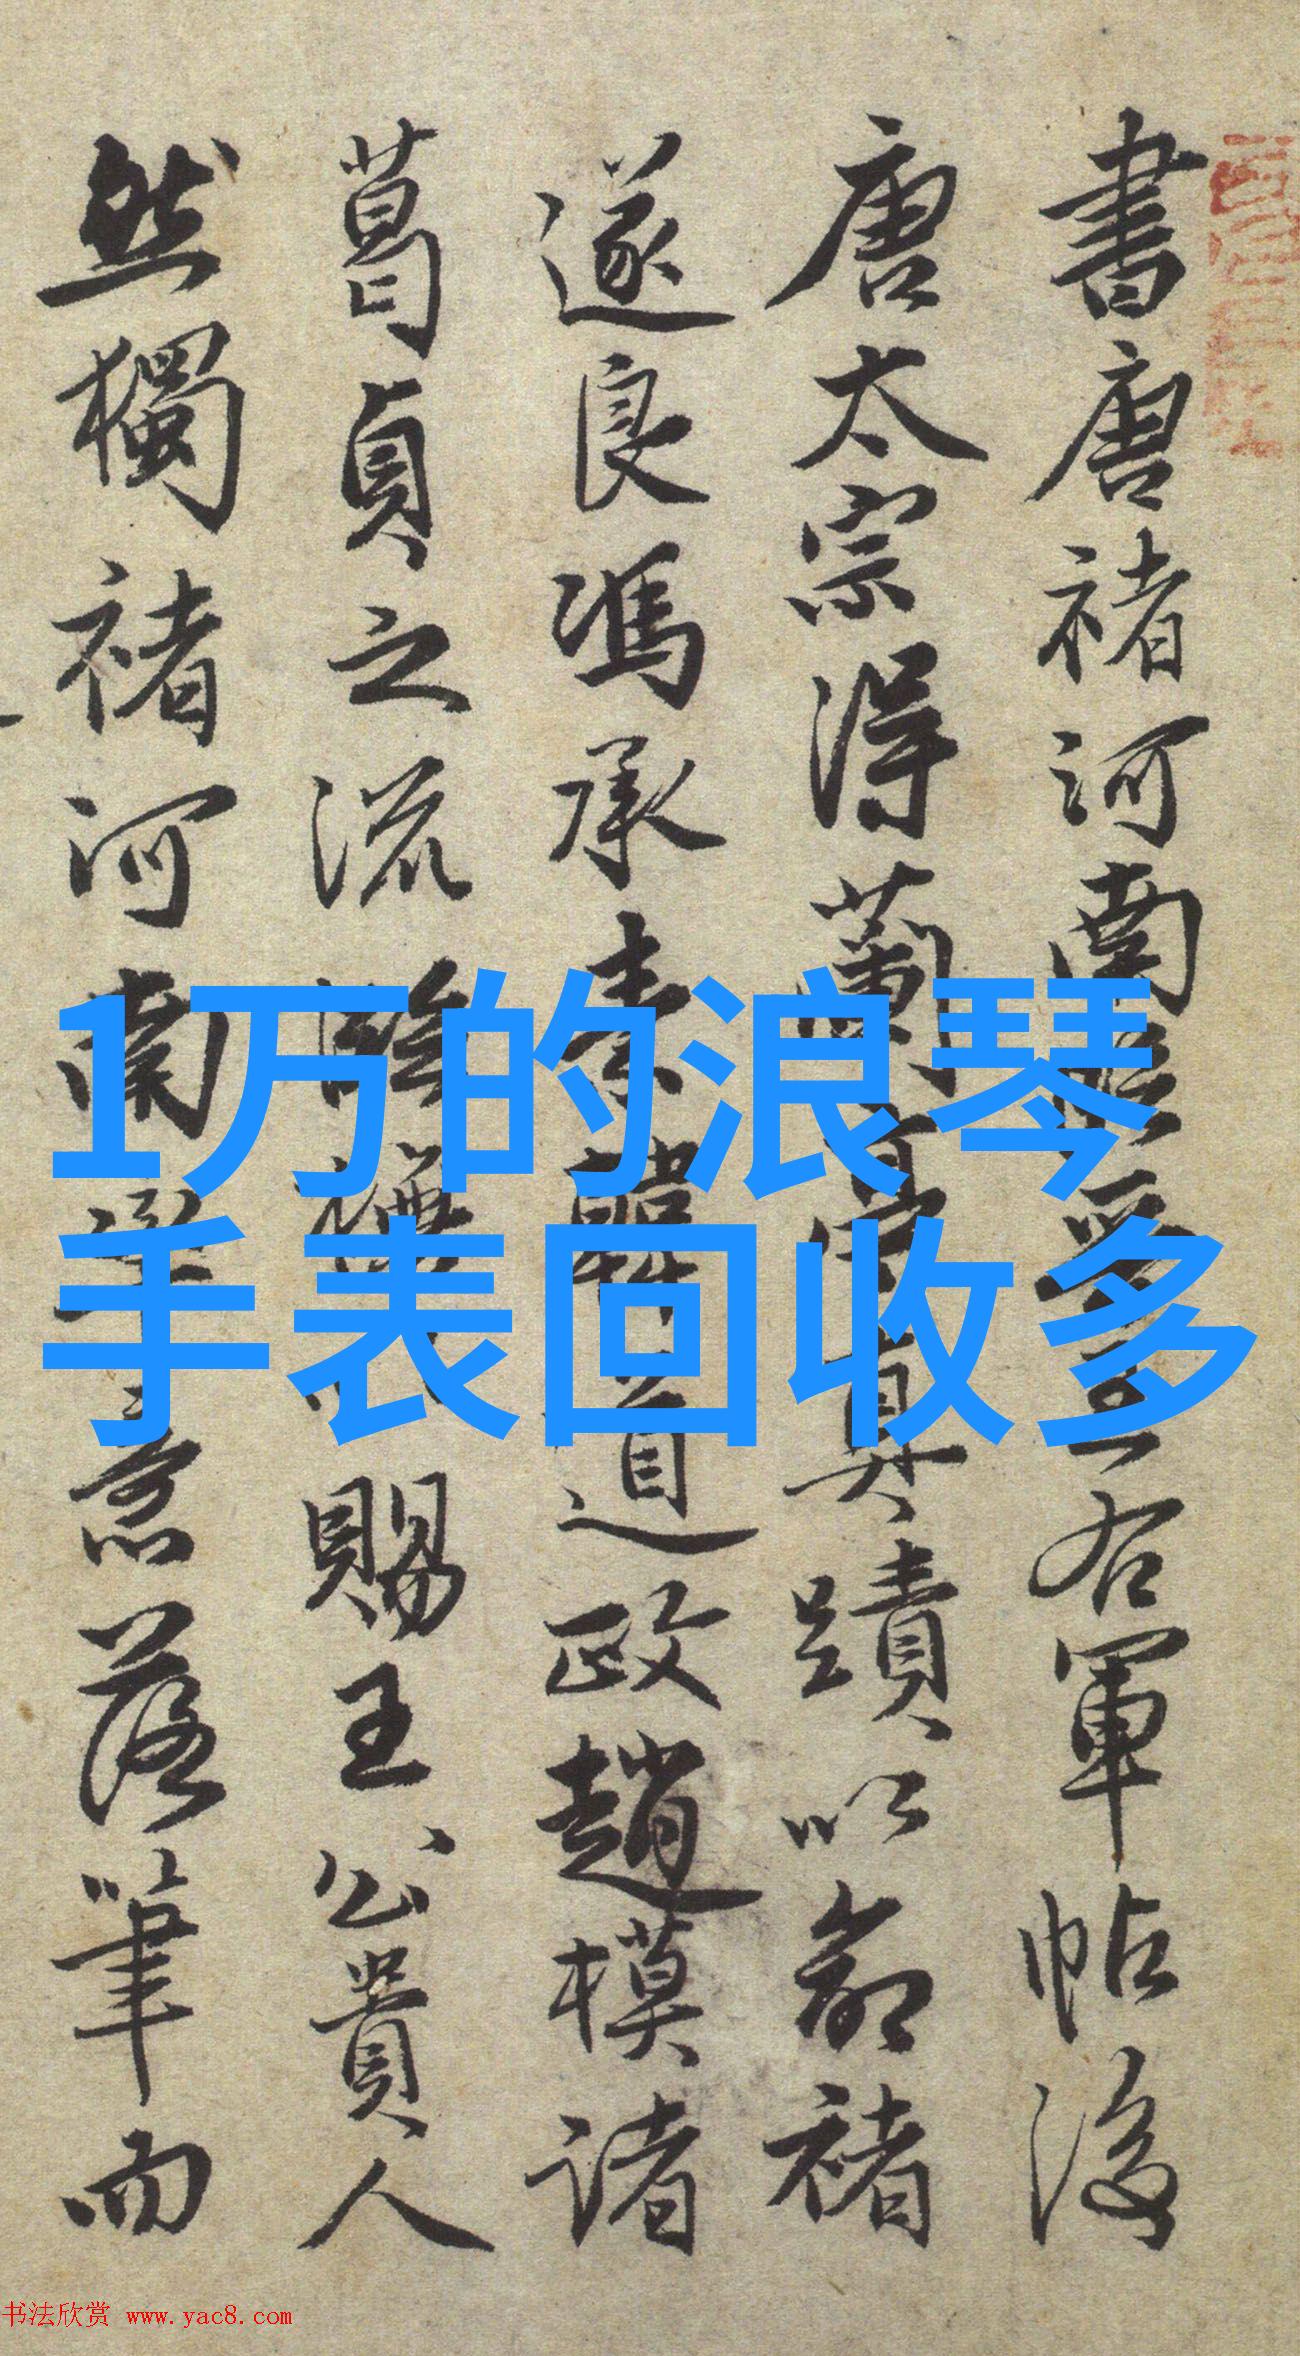 書唐褚河南臨右軍帖後
唐太宗得蘭亭真蹟以命褚
遂良馮承素韓道政趙模諸
葛貞之流賜王公貴人
然獨褚河南意落筆而
1万的浪琴
手表回收多
书法欣赏 www.yac8.com